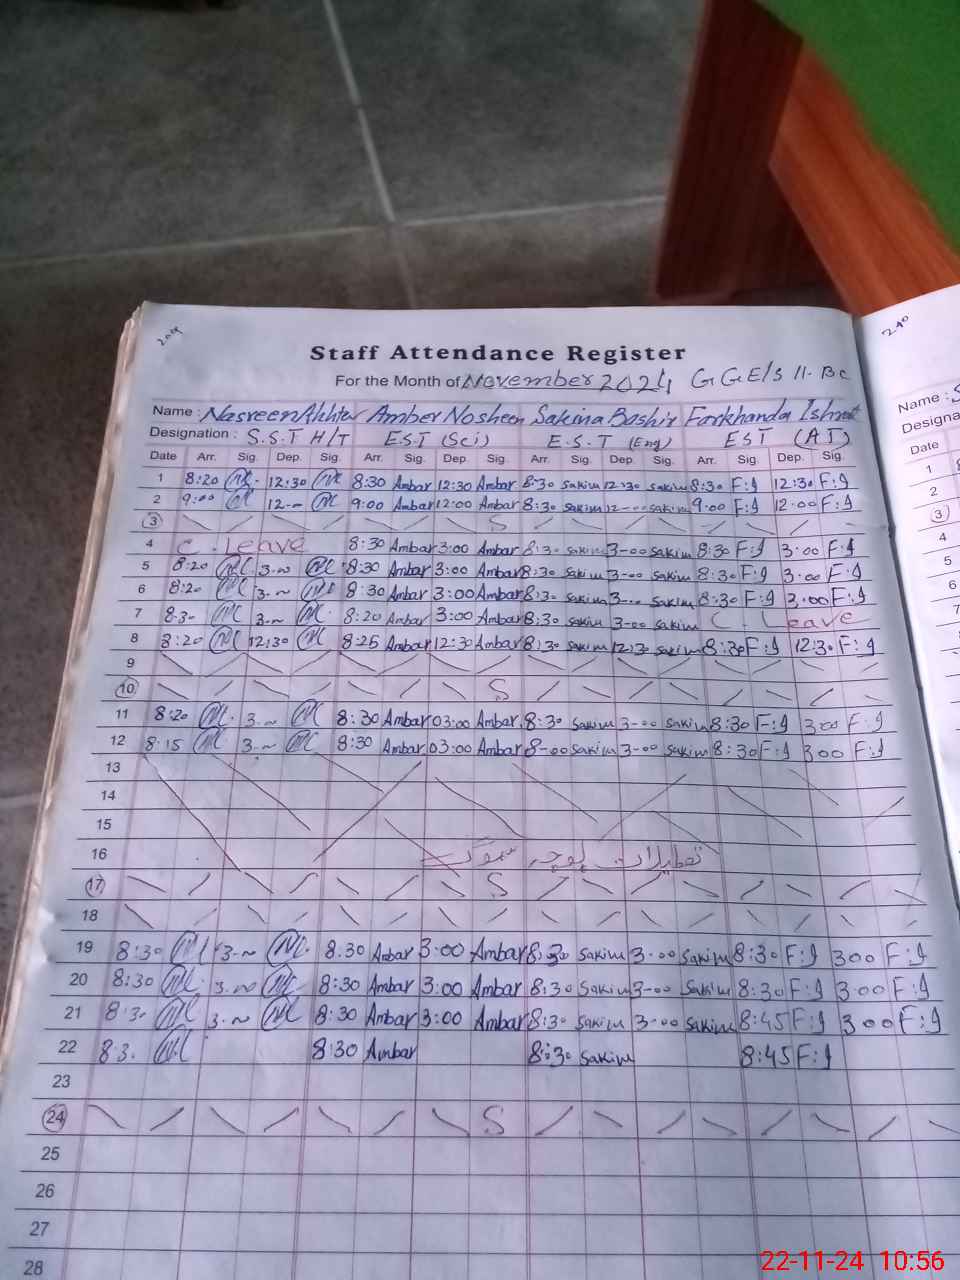 209
240
Staff Attendance Register
For the Month of November 2024 GGE/S 11. BC
Name : Nasreen Akhter Amber Nosheen Sakina Bashir Farkhanda Ishrat
Name :
Designation : S.S.T H/T E.S.T (Sci) E.S.T (Eng) EST (AI)
Designa
Date Arr. Sig. Dep. Sig. Arr. Sig. Dep. Sig. Arr. Sig. Dep. Sig. Arr. Sig. Dep. Sig.
Date
1 8:20 12:30 8:30 Ambar 12:30 Ambar 8:30 sakim 12:30 sakim 8:30 F:I 12:30 F:I
2 9:00 12-- 9:00 Ambar 12:00 Ambar 8:30 sakim 12-00 sakim 9:00 F:I 12:00 F:I
3 S
4 C. Leave 8:30 Ambar 3:00 Ambar 8:30 sakim 3-00 sakim 8:30 F:I 3:00 F:I
5 8:20 3.~ 8:30 Ambar 3:00 Ambar 8:30 sakim 3-00 sakim 8:30 F:I 3:00 F:I
6 8:20 3.~ 8:30 Ambar 3:00 Ambar 8:30 sakim 3-00 sakim 8:30 F:I 3:00 F:I
7 8:30 3.~ 8:20 Ambar 3:00 Ambar 8:30 sakim 3-00 sakim C. Leave
8 8:20 12:30 8:25 Ambar 12:30 Ambar 8:30 sakim 12:30 sakim 8:30 F:I 12:30 F:I
9
10 S
11 8:20 3.~ 8:30 Ambar 03:00 Ambar 8:30 sakim 3-00 sakim 8:30 F:I 300 F:I
12 8:15 3.~ 8:30 Ambar 03:00 Ambar 8-00 sakim 3-00 sakim 8:30 F:I 300 F:I
13
14
15
16 تعطیلات بوجہ سموگ
17 S
18
19 8:30 3.~ 8:30 Ambar 3:00 Ambar 8:30 sakim 3-00 sakim 8:30 F:I 300 F:I
20 8:30 3.~ 8:30 Ambar 3:00 Ambar 8:30 sakim 3-00 sakim 8:30 F:I 3:00 F:I
21 8:30 3.~ 8:30 Ambar 3:00 Ambar 8:30 sakim 3-00 sakim 8:45 F:I 300 F:I
22 8:3. 8:30 Ambar 8:30 sakim 8:45 F:I
23
24 S
25
26
27
28
1
2
3
4
5
6
7
8
22-11-24 10:56